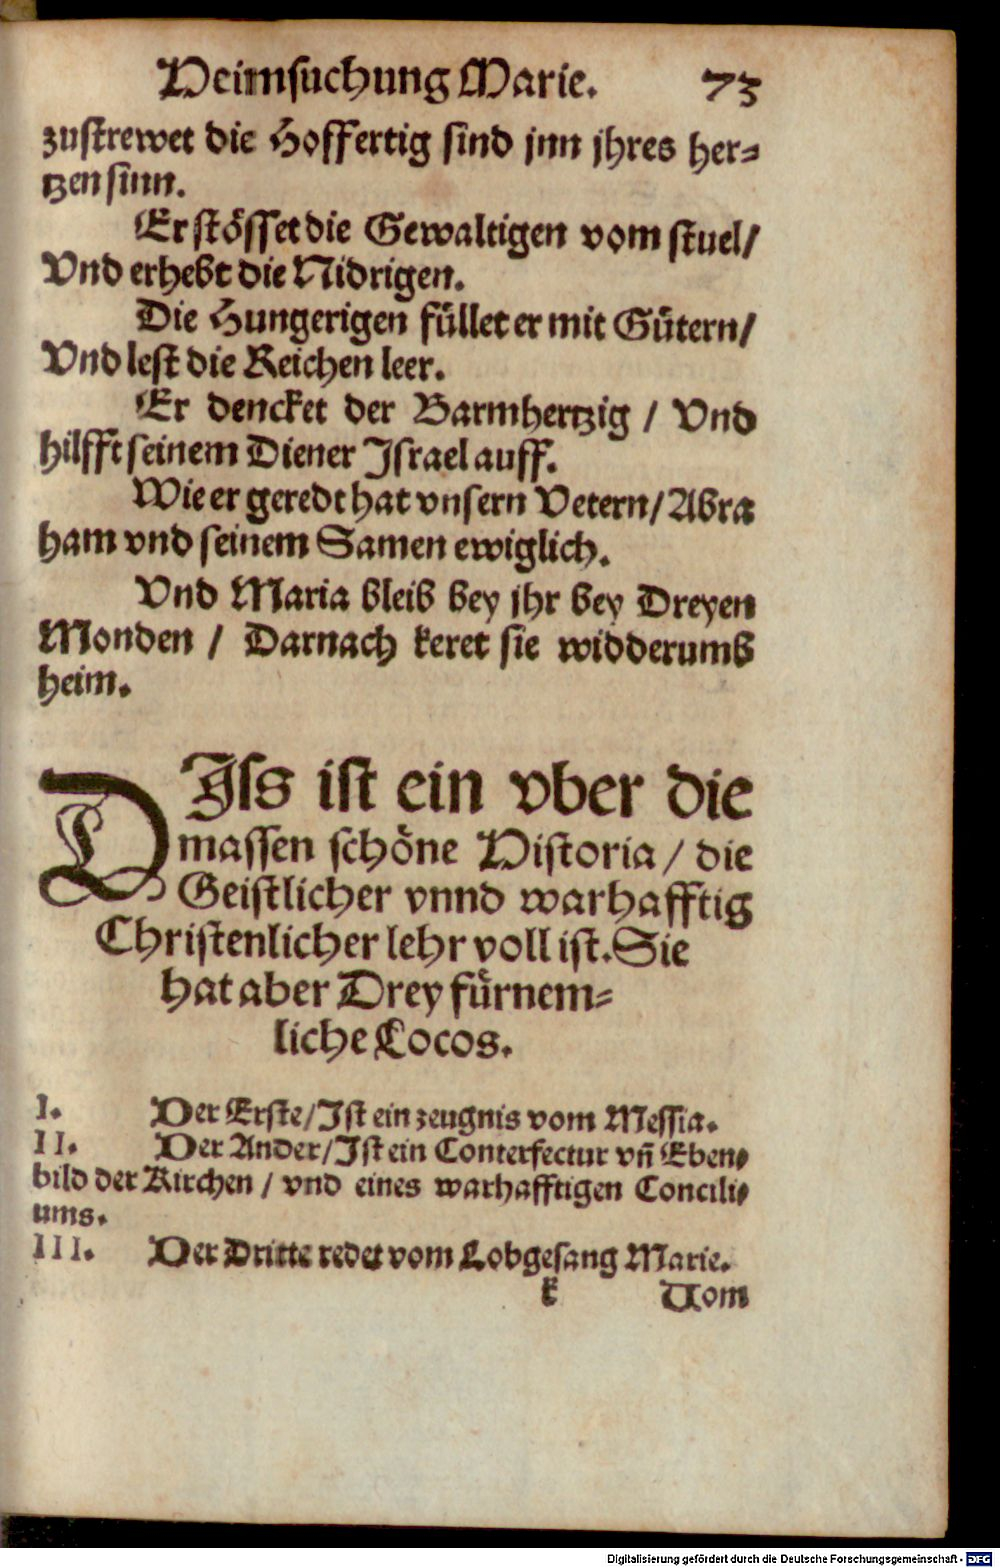 Heimsuchung Marie. 73
zustrewet die Hoffertig sind jnn jhres her⸗
tzen sinn.
Er stösset die Gewaltigen vom stuel/
Vnd erhebt die Nidrigen.
Die Hungerigen füllet er mit Gütern/
Vnd lest die Reichen leer.
Er dencket der Barmhertzig / Vnd
hilfft seinem Diener Jsrael auff.
Wie er geredt hat vnsern Vetern/ Abra
ham vnd seinem Samen ewiglich.
Vnd Maria bleib bey jhr bey Dreyen
Monden / Darnach keret sie widderumb
heim.
DJss ist ein vber die
massen schöne Historia / die
Geistlicher vnnd warhafftig
Christenlicher lehr voll ist. Sie
hat aber Drey fürnem⸗
liche Locos.
I. Der Erste/ Jst ein zeugnis vom Messia.
II. Der Ander/ Jst ein Conterfectur vñ Eben⸗
bild der Kirchen / vnd eines warhafftigen Concili⸗
ums.
III. Der Dritte redet vom Lobgesang Marie.
k Vom
Digitalisierung gefördert durch die Deutsche Forschungsgemeinschaft - DFG